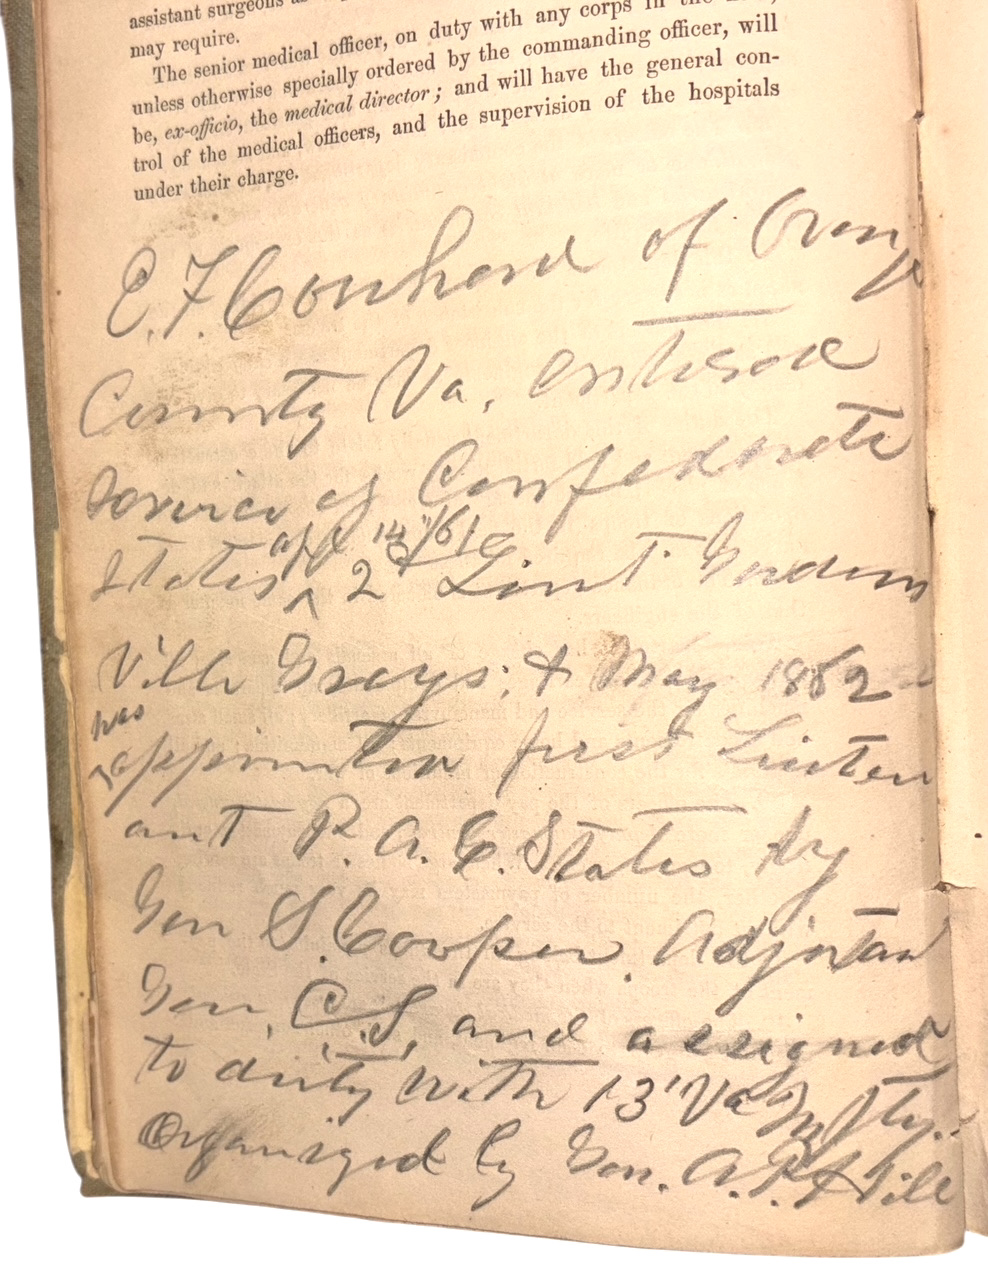 assistant surgeons as
may require.
The senior medical officer, on duty with any corps in the
unless otherwise specially ordered by the commanding officer, will
be, ex-officio, the medical director; and will have the general con-
trol of the medical officers, and the supervision of the hospitals
under their charge.
E. F. Cowherd of Orange
County Va, entered
Service of Confederate
apl 14"/61
States ^ 2 Lieut Gordons
Ville Grays; & May 1862
has
^ appointed first Lieuten
ant P. A. C. States by
Gen S. Cooper, Adjutant
Gen, C.S, and assigned
to duty with 13' Va Infty.
Organized by Gen. A. P. Hill